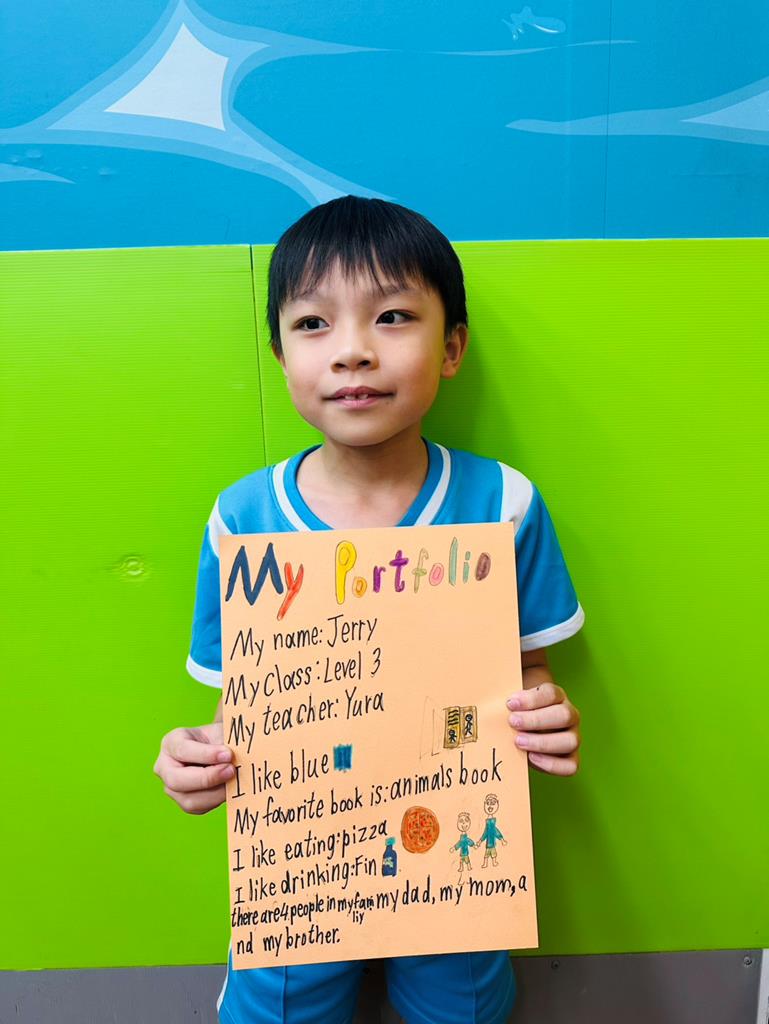 My Portfolio
My name: Jerry
My Class: Level 3
My teacher: Yura
I like blue
My favorite book is: animals book
I like eating: pizza
I like drinking: Fin
there are 4 people in my family my dad, my mom, a
nd my brother.